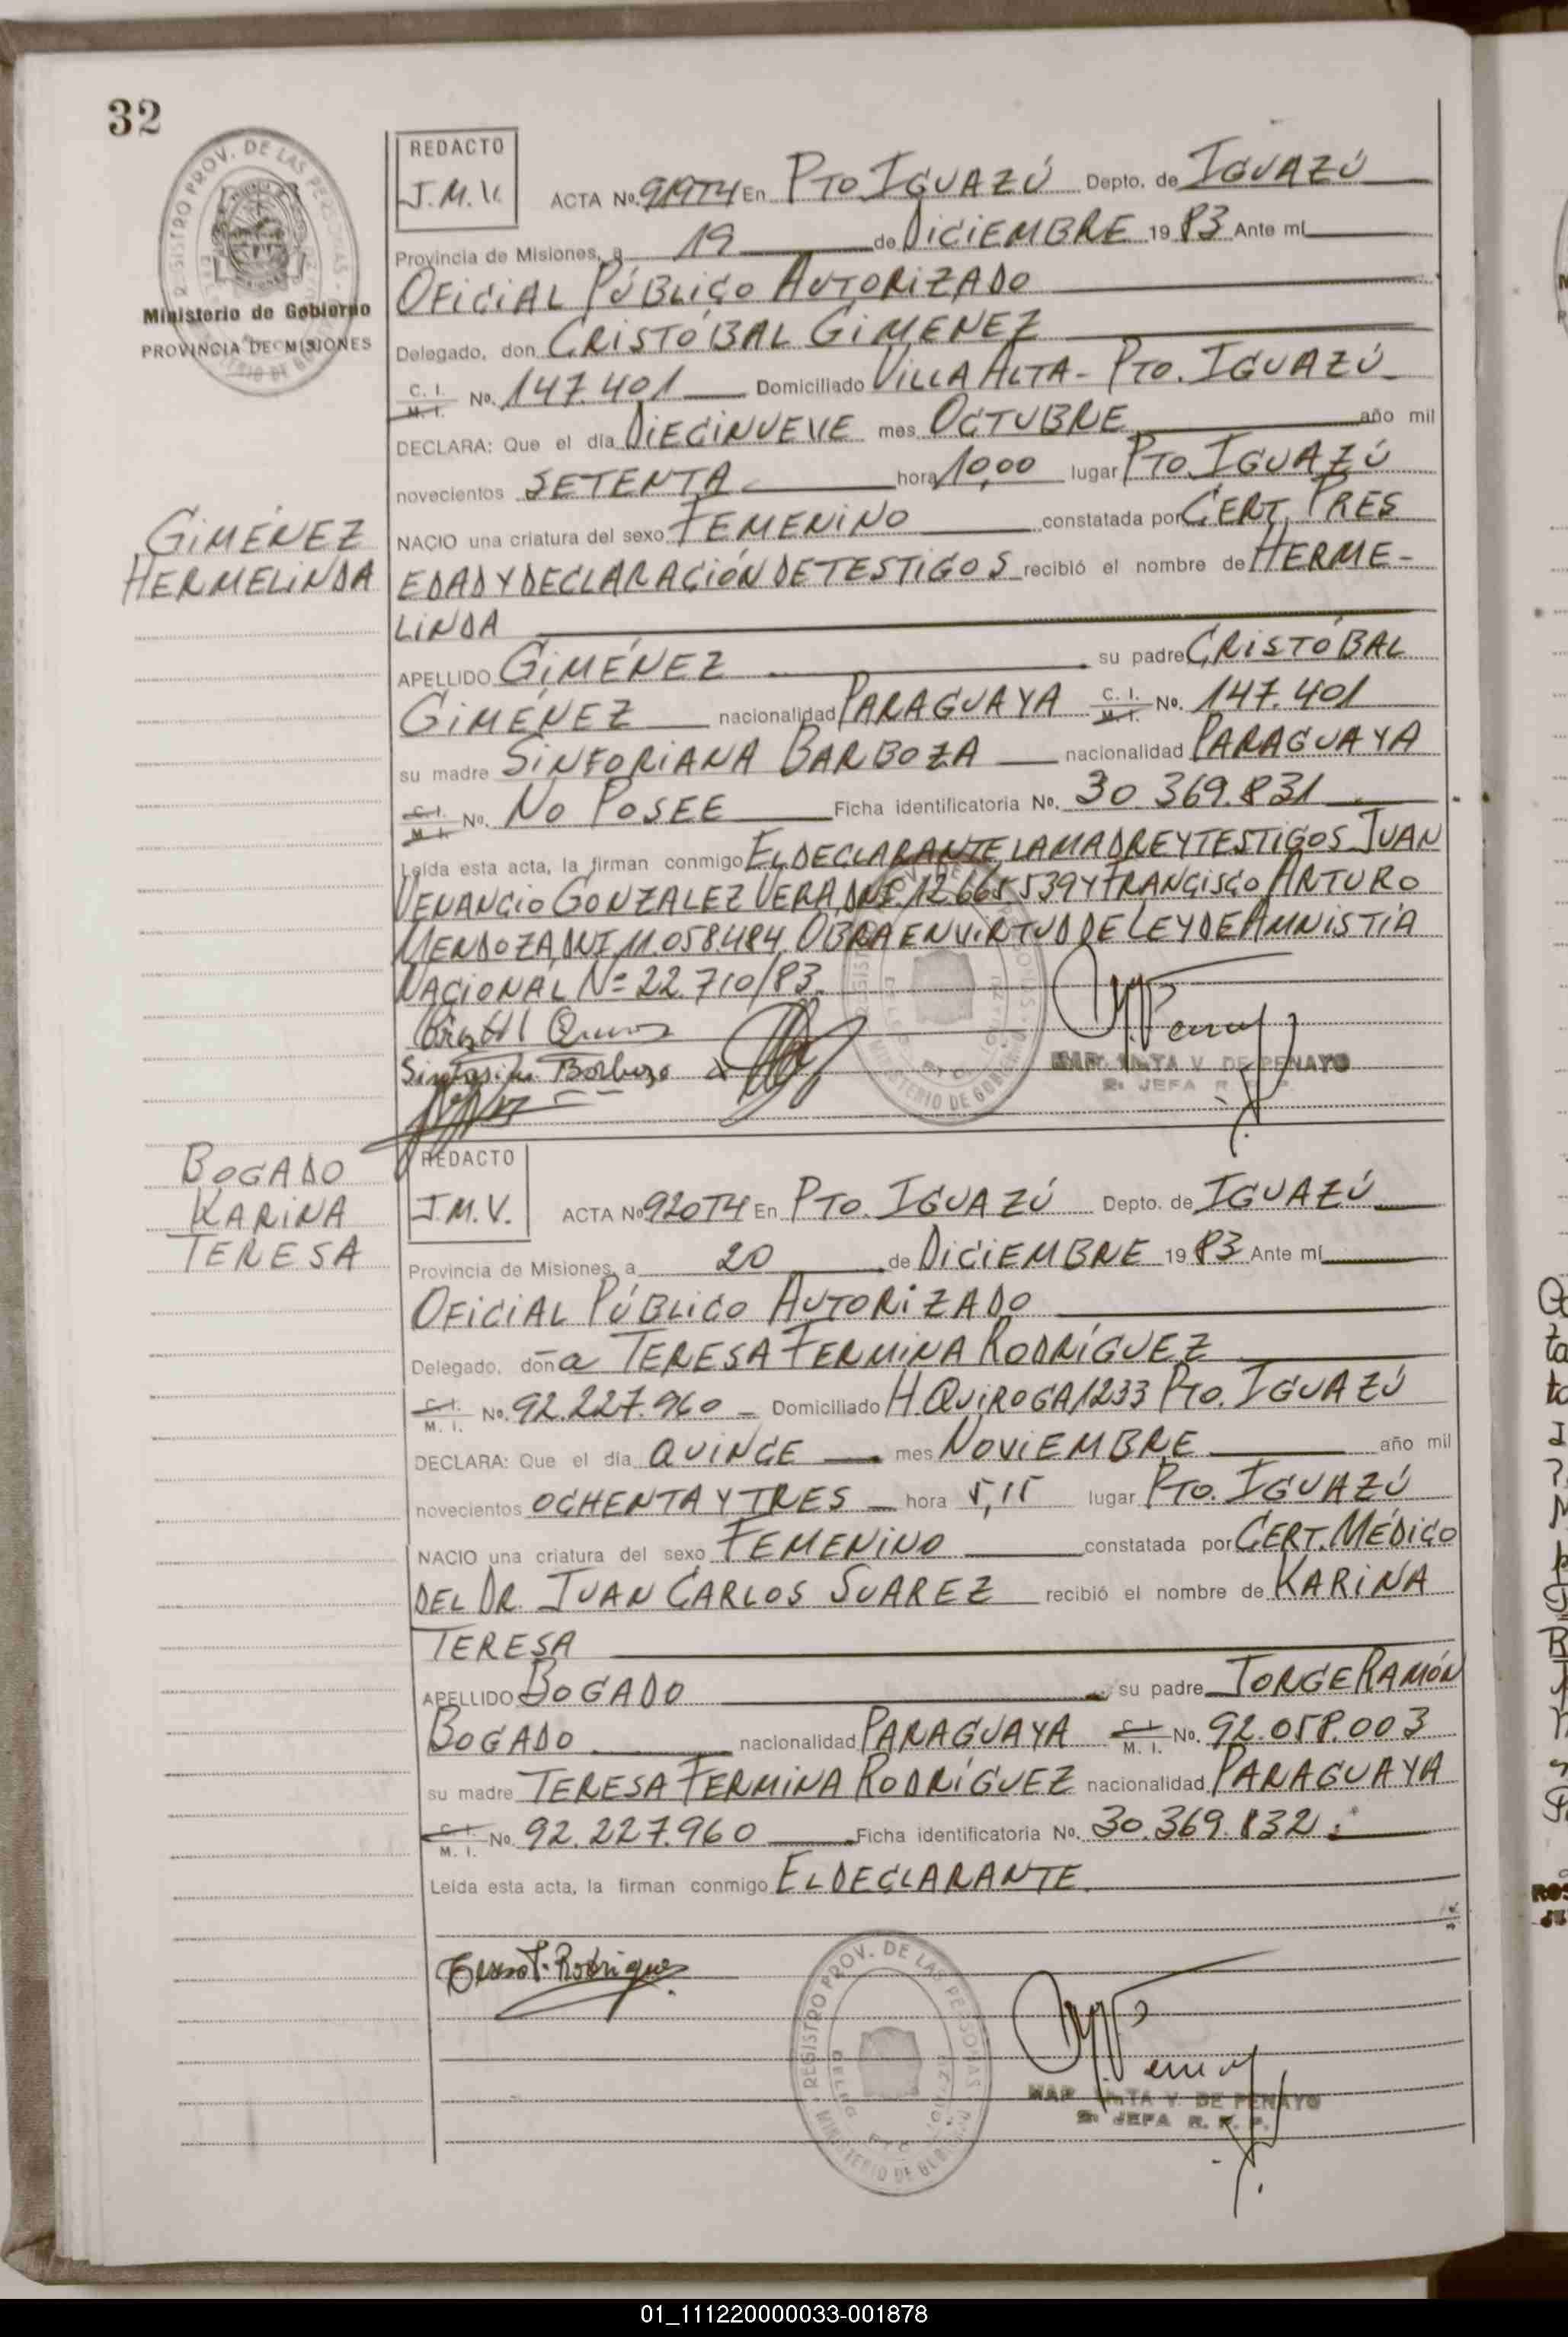 32
REGISTRO PROV. DE LAS PERSONAS
Ministerio de Gobierno
PROVINCIA DE MISIONES
REDACTO
J.M.V.
ACTA No. 919T4 En PTO IGUAZÚ Depto. de IGUAZÚ
Provincia de Misiones, a 19 de DICIEMBRE 1983 Ante mí
OFICIAL PÚBLICO AUTORIZADO
Delegado, don CRISTÓBAL GIMENEZ
C. I. M. I. No. 147.401 Domiciliado VILLA ALTA - PTO. IGUAZÚ
DECLARA: Que el día DIECINUEVE mes OCTUBRE año mil
novecientos SETENTA hora 10,00 lugar PTO. IGUAZÚ
GIMÉNEZ
HERMELINDA
NACIO una criatura del sexo FEMENINO constatada por CERT. PRES
EDAD Y DECLARACIÓN DE TESTIGOS recibió el nombre de HERME-
LINDA
APELLIDO GIMÉNEZ su padre CRISTÓBAL
GIMÉNEZ nacionalidad PARAGUAYA C. I. M. I. No. 147.401
su madre SINFORIANA BARBOZA nacionalidad PARAGUAYA
C. I. M. I. No. NO POSEE Ficha identificatoria No. 30.369.831
Leída esta acta, la firman conmigo EL DECLARANTE LA MADRE Y TESTIGOS JUAN
VENANCIO GONZALEZ VERA, DNI. 12.665.539 Y FRANCISCO ARTURO
MENDOZA, DNI. 11.058.484. OBRA EN VIRTUD DE LEY DE AMNISTÍA
NACIONAL Nº 22.710/83.
V. DE PENAYO
JEFA R. P. P.
BOGADO
KARINA
TERESA
REDACTO
J.M.V.
ACTA No 920T4 En PTO. IGUAZÚ Depto. de IGUAZÚ
Provincia de Misiones, a 20 de DICIEMBRE 1983 Ante mí
OFICIAL PÚBLICO AUTORIZADO
Delegado, don a TERESA FERMINA RODRÍGUEZ
C. I. M. I. No. 92.227.960 Domiciliado H. QUIROGA 1233 PTO. IGUAZÚ
DECLARA: Que el día QUINCE mes NOVIEMBRE año mil
novecientos OCHENTA Y TRES hora 5,15 lugar PTO. IGUAZÚ
NACIO una criatura del sexo FEMENINO constatada por CERT. MÉDICO
DEL DR. JUAN CARLOS SUAREZ recibió el nombre de KARINA
TERESA
APELLIDO BOGADO su padre JORGE RAMÓN
BOGADO nacionalidad PARAGUAYA C. I. M. I. No. 92.058.003
su madre TERESA FERMINA RODRÍGUEZ nacionalidad PARAGUAYA
C. I. M. I. No. 92.227.960 Ficha identificatoria No. 30.369.832
Leída esta acta, la firman conmigo EL DECLARANTE
REGISTRO PROV. DE LAS PERSONAS
V. DE PENAYO
JEFA R. P. P.
01_111220000033-001878